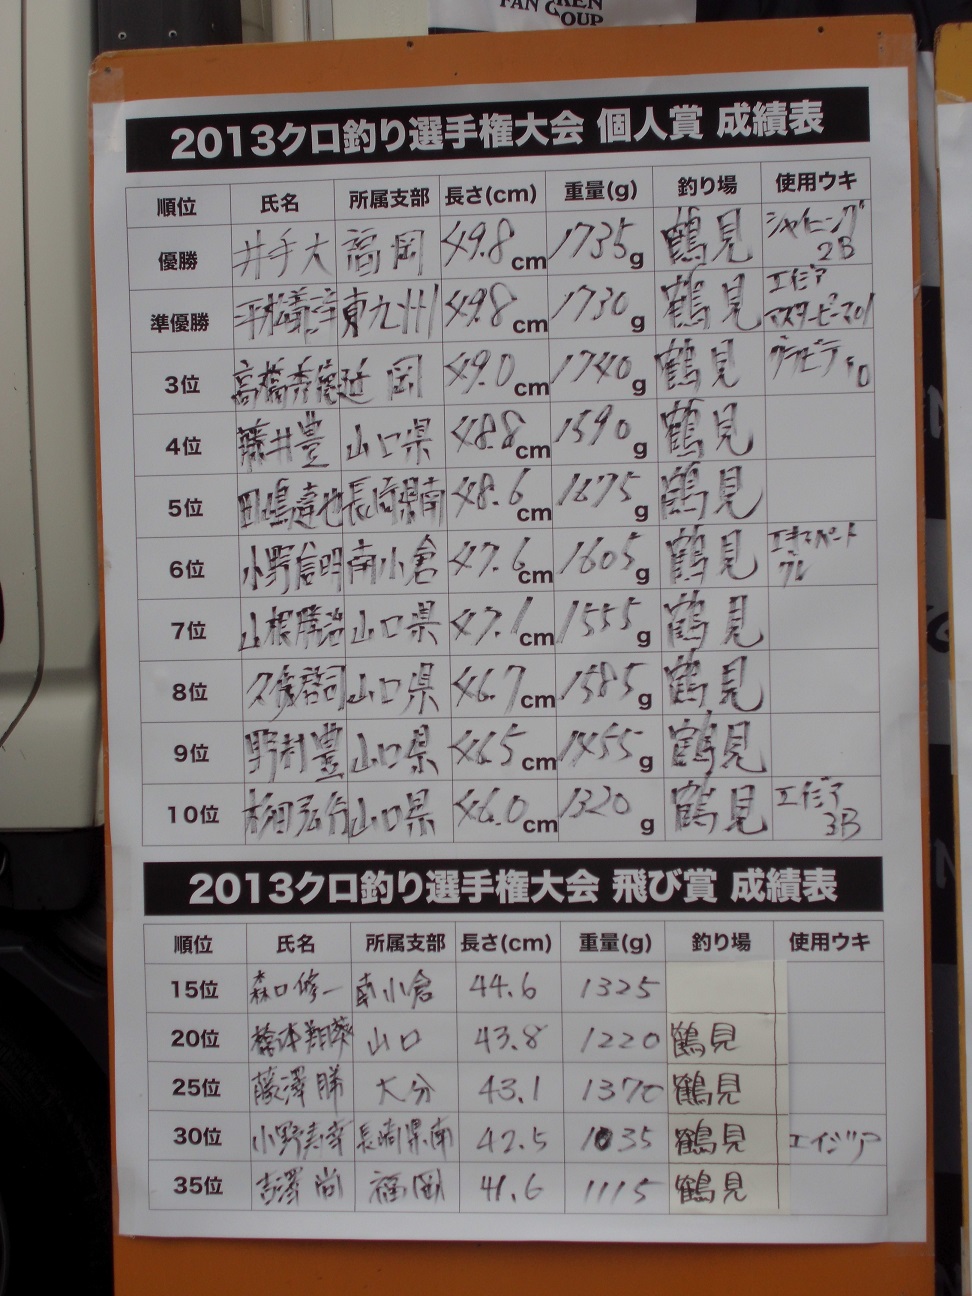 FAN
GROUP
2013クロ釣り選手権大会 個人賞 成績表
順位 氏名 所属支部 長さ(cm) 重量(g) 釣り場 使用ウキ
優勝 井手大 福岡 49.8cm 1735g 鶴見 シャイニング 2B
準優勝 東九州 49.8cm 1730g 鶴見 エイジア マスターピース01
3位 高橋秀徳 延岡 49.0cm 1740g 鶴見
4位 藤井豊 山口県 48.8cm 1590g 鶴見
5位 長崎県南 48.6cm 1675g 鶴見
6位 小野信明 南小倉 47.6cm 1605g 鶴見 グレ
7位 山根勝治 山口県 47.1cm 1555g 鶴見
8位 山口県 46.7cm 1585g 鶴見
9位 野村豊 山口県 46.5cm 1455g 鶴見
10位 山口県 46.0cm 1320g 鶴見 エイジア 3B
2013クロ釣り選手権大会 飛び賞 成績表
順位 氏名 所属支部 長さ(cm) 重量(g) 釣り場 使用ウキ
15位 森口修一 南小倉 44.6 1325
20位 山口 43.8 1220 鶴見
25位 藤澤勝 大分 43.1 1370 鶴見
30位 長崎県南 42.5 1035 鶴見 エイジア
35位 吉澤尚 福岡 41.6 1115 鶴見